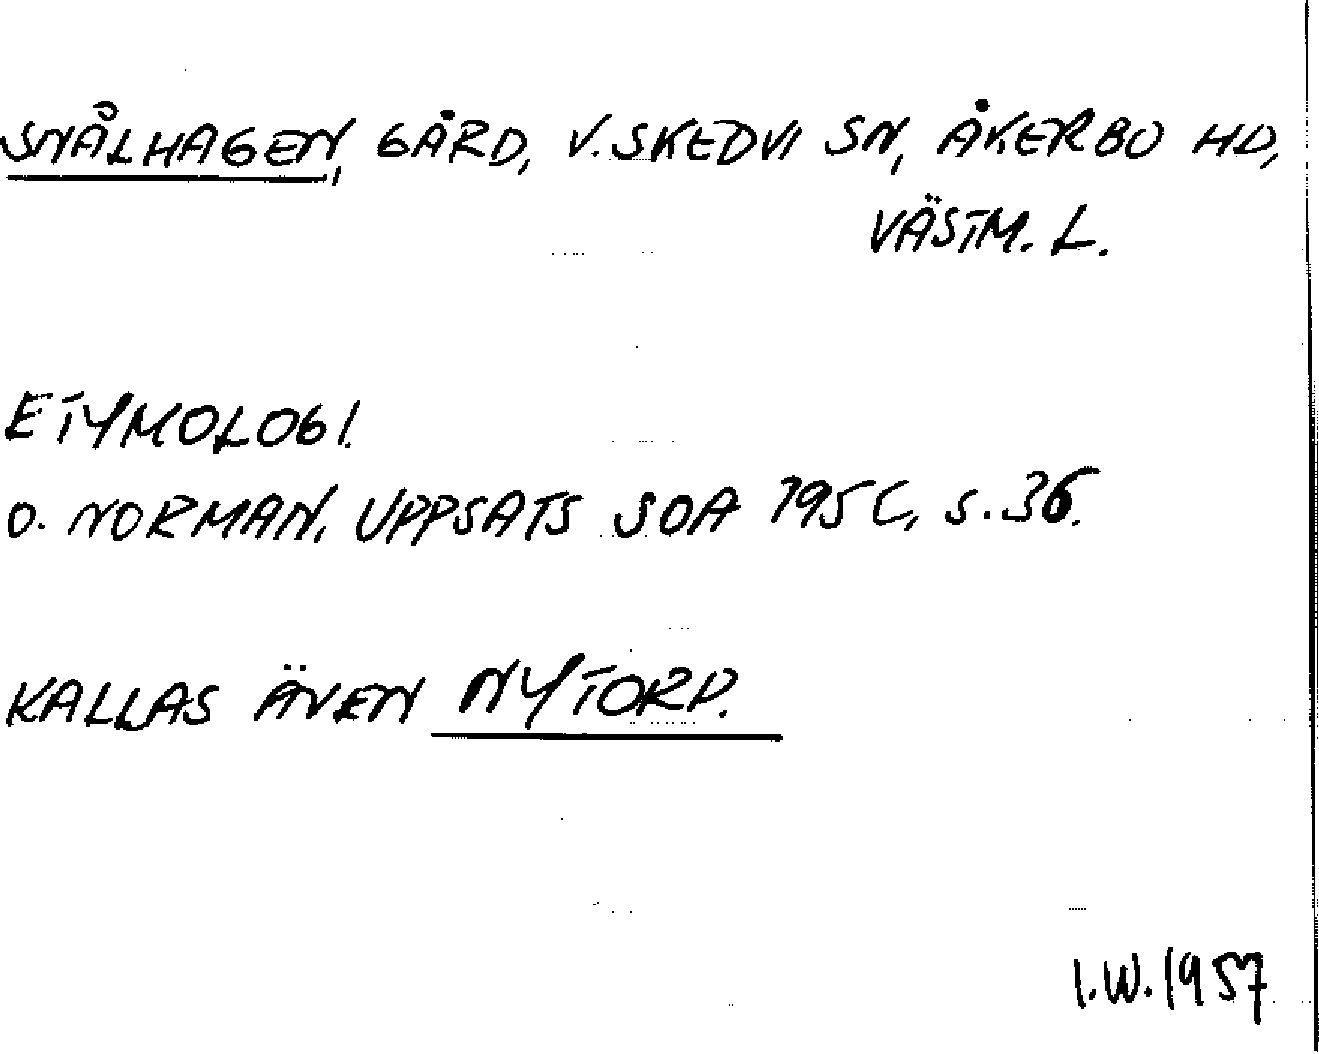 SNÅLHAGEN, GÅRD, V. SKEDVI SN, ÅKERBO HD,
VÄSTM. L.
ETYMOLOGI.
O. NORMAN, UPPSATS SOA 195C, S. 36.
KALLAS ÄVEN NYTORP.
I.W. 1957